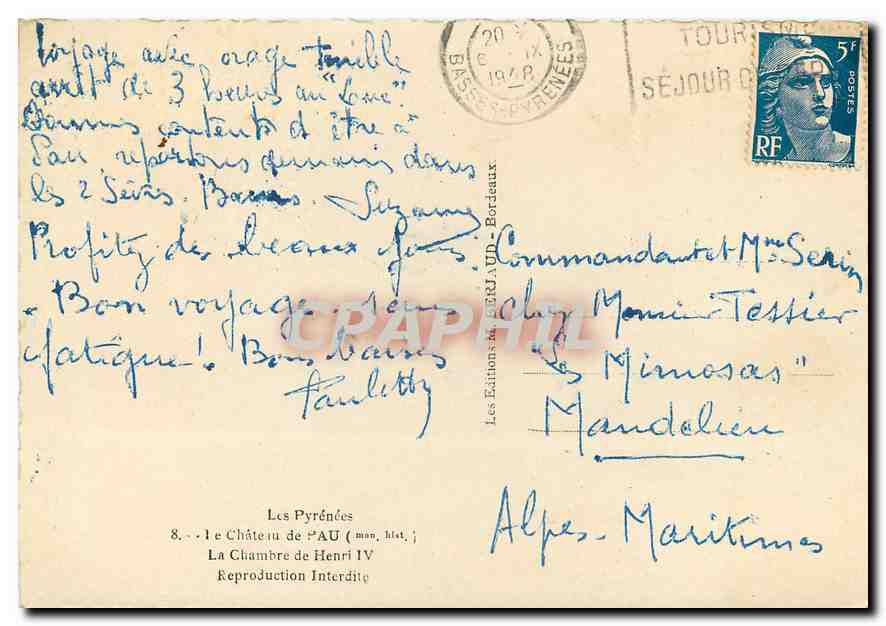 Voyage avec orage terrible
arrêt de 3 heures au
Sommes contents d'être à
Pau, repartons demain dans
les 2 Sèvres. Suzanne
Profitez des beaux jours.
Bon voyage sans
fatigue! Bons baisers
Paulette
Les Pyrénées
8. - Le Château de PAU (mon. hist.)
La Chambre de Henri IV
Reproduction Interdite
Les Editions M. SERJAUD - Bordeaux
20
6 IX
1948
BASSES-PYRÉNÉES
TOURISME
SÉJOUR
5F
POSTES
RF
Commandant et Mme Serin
chez Monsieur Tessier
"Les Mimosas"
Mandelieu
Alpes-Maritimes
CPAPHIL